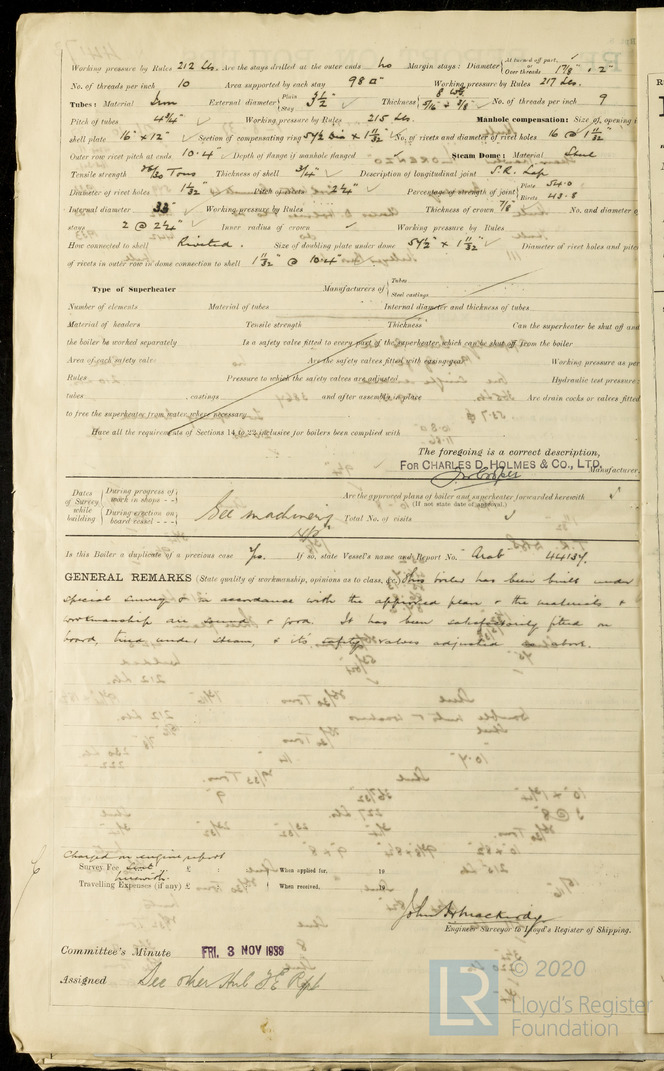 Working pressure by Rules 212 Lbs. Are the stays drilled at the outer ends No Margin stays: Diameter { At turned off part, or Over threads 1 7/8" & 2"
No. of threads per inch 10 Area supported by each stay 98 □" Working pressure by Rules 217 Lbs.
Tubes: Material Iron External diameter { Plain Stay 3 1/2" Thickness { 8 WG 5/16" & 3/8" No. of threads per inch 9
Pitch of tubes 4 3/4" Working pressure by Rules 215 Lbs. Manhole compensation: Size of opening i
shell plate 16" x 12" Section of compensating ring No. of rivets and diameter of rivet holes 16 @ 1 11/32"
Outer row rivet pitch at ends 10.4" Depth of flange if manhole flanged Steam Dome: Material Steel
Tensile strength 26/30 Tons Thickness of shell 3/4" Description of longitudinal joint S.R. Lap
Diameter of rivet holes 1 1/32" Pitch of rivets 2 1/4" Percentage of strength of joint { Plate 54.0 Rivets 43.8
Internal diameter 33" Working pressure by Rules Thickness of crown 7/8" No. and diameter o
stays 2 @ 2 1/4" Inner radius of crown Working pressure by Rules
How connected to shell Riveted. Size of doubling plate under dome 54 1/2" x 1 11/32" Diameter of rivet holes and pitc
of rivets in outer row in dome connection to shell 1 11/32" @ 10.4"
Type of Superheater Manufacturers of { Tubes Steel castings
Number of elements Material of tubes Internal diameter and thickness of tubes
Material of headers Tensile strength Thickness Can the superheater be shut off and
the boiler be worked separately Is a safety valve fitted to every part of the superheater which can be shut off from the boiler
Area of each safety valve Are the safety valves fitted with easing gear Working pressure as per
Rules Pressure to which the safety valves are adjusted Hydraulic test pressure:
tubes castings and after assembly in place Are drain cocks or valves fitted
to free the superheater from water where necessary
Have all the requirements of Sections 14 to 22 inclusive for boilers been complied with
The foregoing is a correct description,
FOR CHARLES D. HOLMES & CO., LTD. Manufacturer.
Dates of Survey while building { During progress of work in shops - - During erection on board vessel - - - See machinery Are the approved plans of boiler and superheater forwarded herewith
(If not state date of approval.)
Total No. of visits
Is this Boiler a duplicate of a previous case Yes. If so, state Vessel's name and Report No. Arab 44157.
GENERAL REMARKS (State quality of workmanship, opinions as to class, &c.) This boiler has been built under
special survey & in accordance with the approved plan & the materials &
workmanship are sound & good. It has been satisfactorily fitted on
board, tried under steam, & its safety valves adjusted as above.
Charged on engine report
Survey Fee £ : : When applied for, 19
herewith
Travelling Expenses (if any) £ : : When received, 19
Engineer Surveyor to Lloyd's Register of Shipping.
Committee's Minute FRI. 3 NOV 1933
Assigned See other
LR © 2020
Lloyd's Register
Foundation